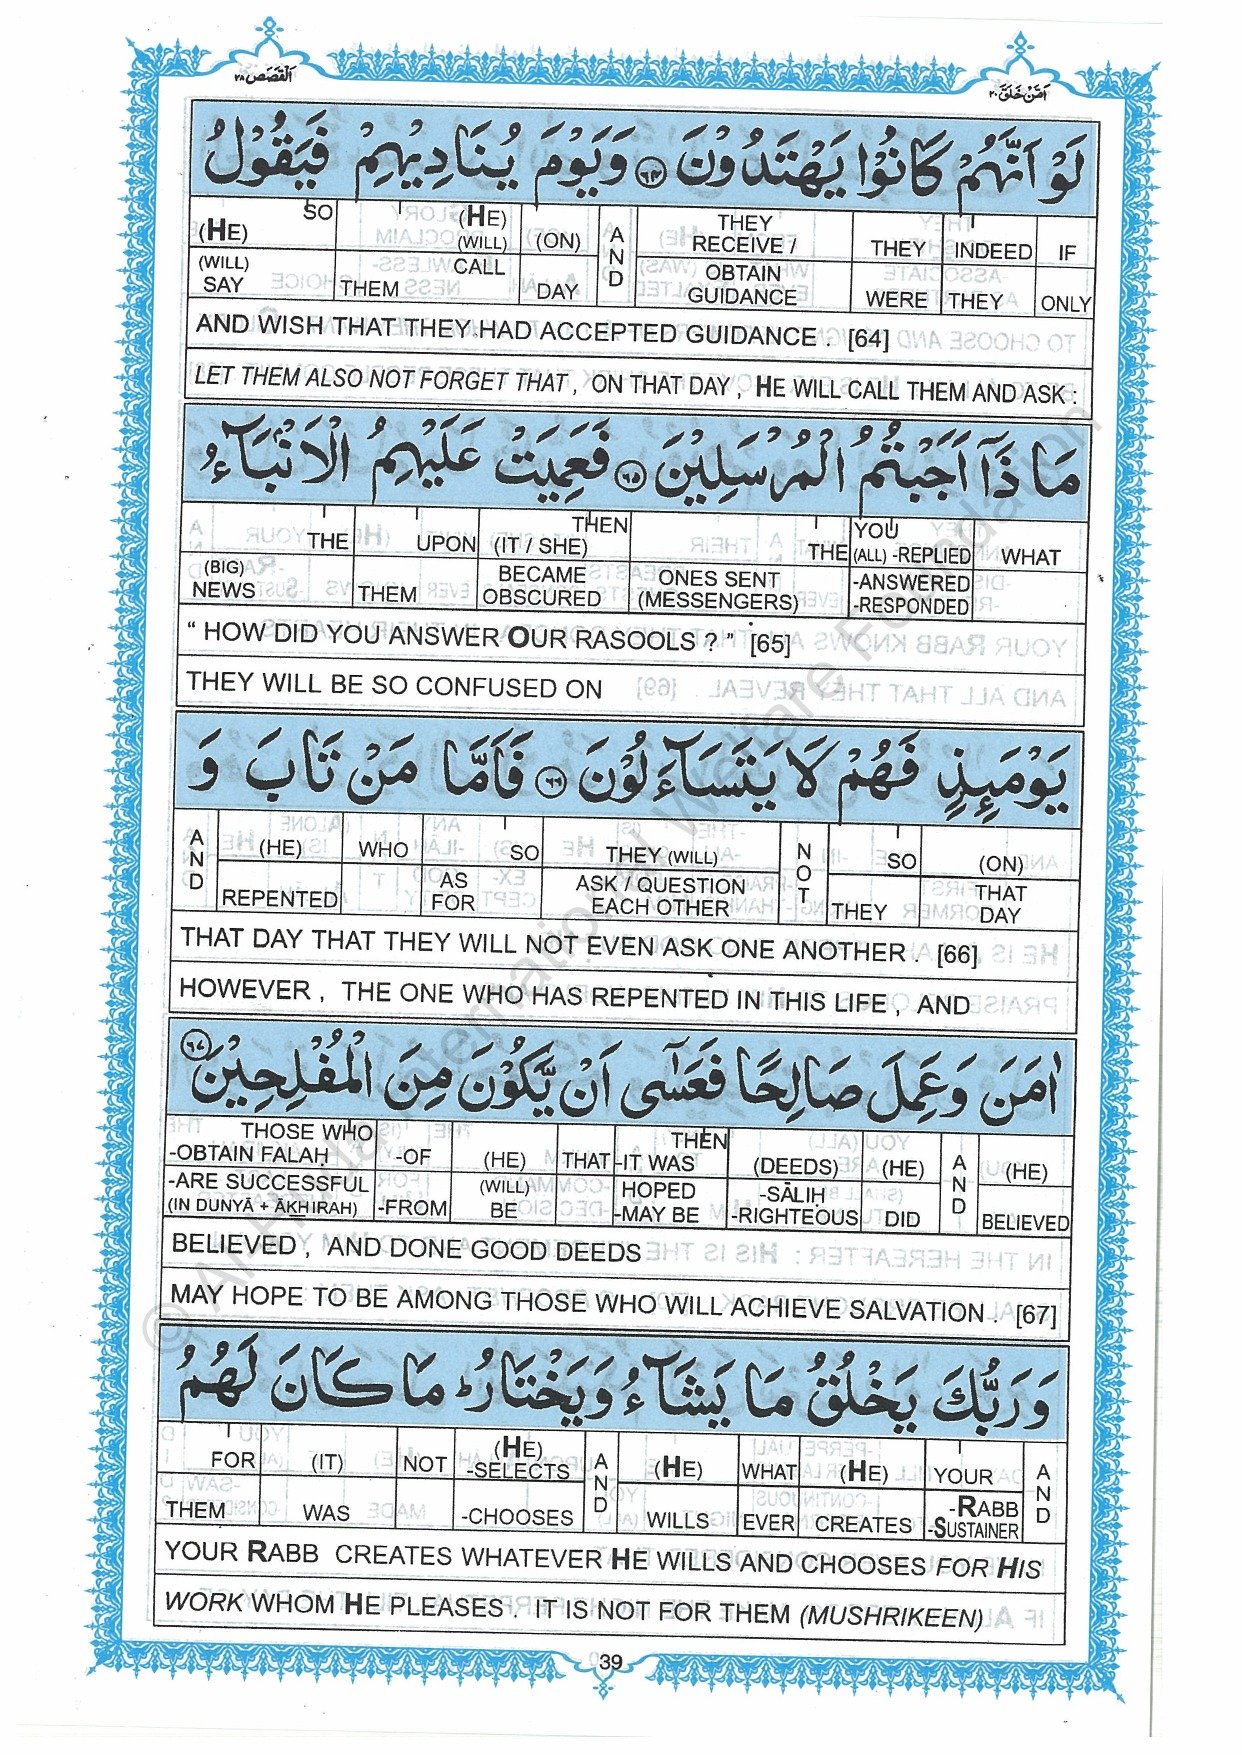 اَلْقَصَص ٢٨
اَمَّنْ خَلَقَ ٢٠
لَوْ اَنَّهُمْ كَانُوْا يَهْتَدُوْنَ ٦٤ وَيَوْمَ يُنَادِيْهِمْ فَيَقُوْلُ
IF ONLY | INDEED THEY | THEY WERE | THEY RECEIVE / OBTAIN GUIDANCE | AND | (ON) DAY | (HE) (WILL) CALL THEM | SO (HE) (WILL) SAY
AND WISH THAT THEY HAD ACCEPTED GUIDANCE . [64]
LET THEM ALSO NOT FORGET THAT , ON THAT DAY , HE WILL CALL THEM AND ASK :
مَاذَآ اَجَبْتُمُ الْمُرْسَلِيْنَ ٦٥ فَعَمِيَتْ عَلَيْهِمُ الْاَنْۢبَآءُ
WHAT | YOU (ALL) -REPLIED -ANSWERED -RESPONDED | THE ONES SENT (MESSENGERS) | THEN (IT / SHE) BECAME OBSCURED | UPON THEM | THE (BIG) NEWS
“ HOW DID YOU ANSWER OUR RASOOLS ? ” [65]
THEY WILL BE SO CONFUSED ON
يَوْمَئِذٍ فَهُمْ لَا يَتَسَآءَلُوْنَ ٦٦ فَاَمَّا مَنْ تَابَ وَ
(ON) THAT DAY | SO THEY | NOT | THEY (WILL) ASK / QUESTION EACH OTHER | SO AS FOR | WHO | (HE) REPENTED | AND
THAT DAY THAT THEY WILL NOT EVEN ASK ONE ANOTHER . [66]
HOWEVER , THE ONE WHO HAS REPENTED IN THIS LIFE , AND
اٰمَنَ وَعَمِلَ صَالِحًا فَعَسٰٓى اَنْ يَّكُوْنَ مِنَ الْمُفْلِحِيْنَ ٦٧
(HE) BELIEVED | AND | (HE) DID | (DEEDS) -SĀLIH -RIGHTEOUS | THEN -IT WAS HOPED -MAY BE | THAT | (HE) (WILL) BE | -OF -FROM | THOSE WHO -OBTAIN FALAH -ARE SUCCESSFUL (IN DUNYĀ + ĀKHIRAH)
BELIEVED , AND DONE GOOD DEEDS
MAY HOPE TO BE AMONG THOSE WHO WILL ACHIEVE SALVATION . [67]
وَرَبُّكَ يَخْلُقُ مَا يَشَآءُ وَيَخْتَارُ ؕ مَا كَانَ لَهُمُ
AND | YOUR -RABB -SUSTAINER | (HE) CREATES | WHAT EVER | (HE) WILLS | AND | (HE) -SELECTS -CHOOSES | NOT | (IT) WAS | FOR THEM
YOUR RABB CREATES WHATEVER HE WILLS AND CHOOSES FOR HIS
WORK WHOM HE PLEASES . IT IS NOT FOR THEM (MUSHRIKEEN)
39